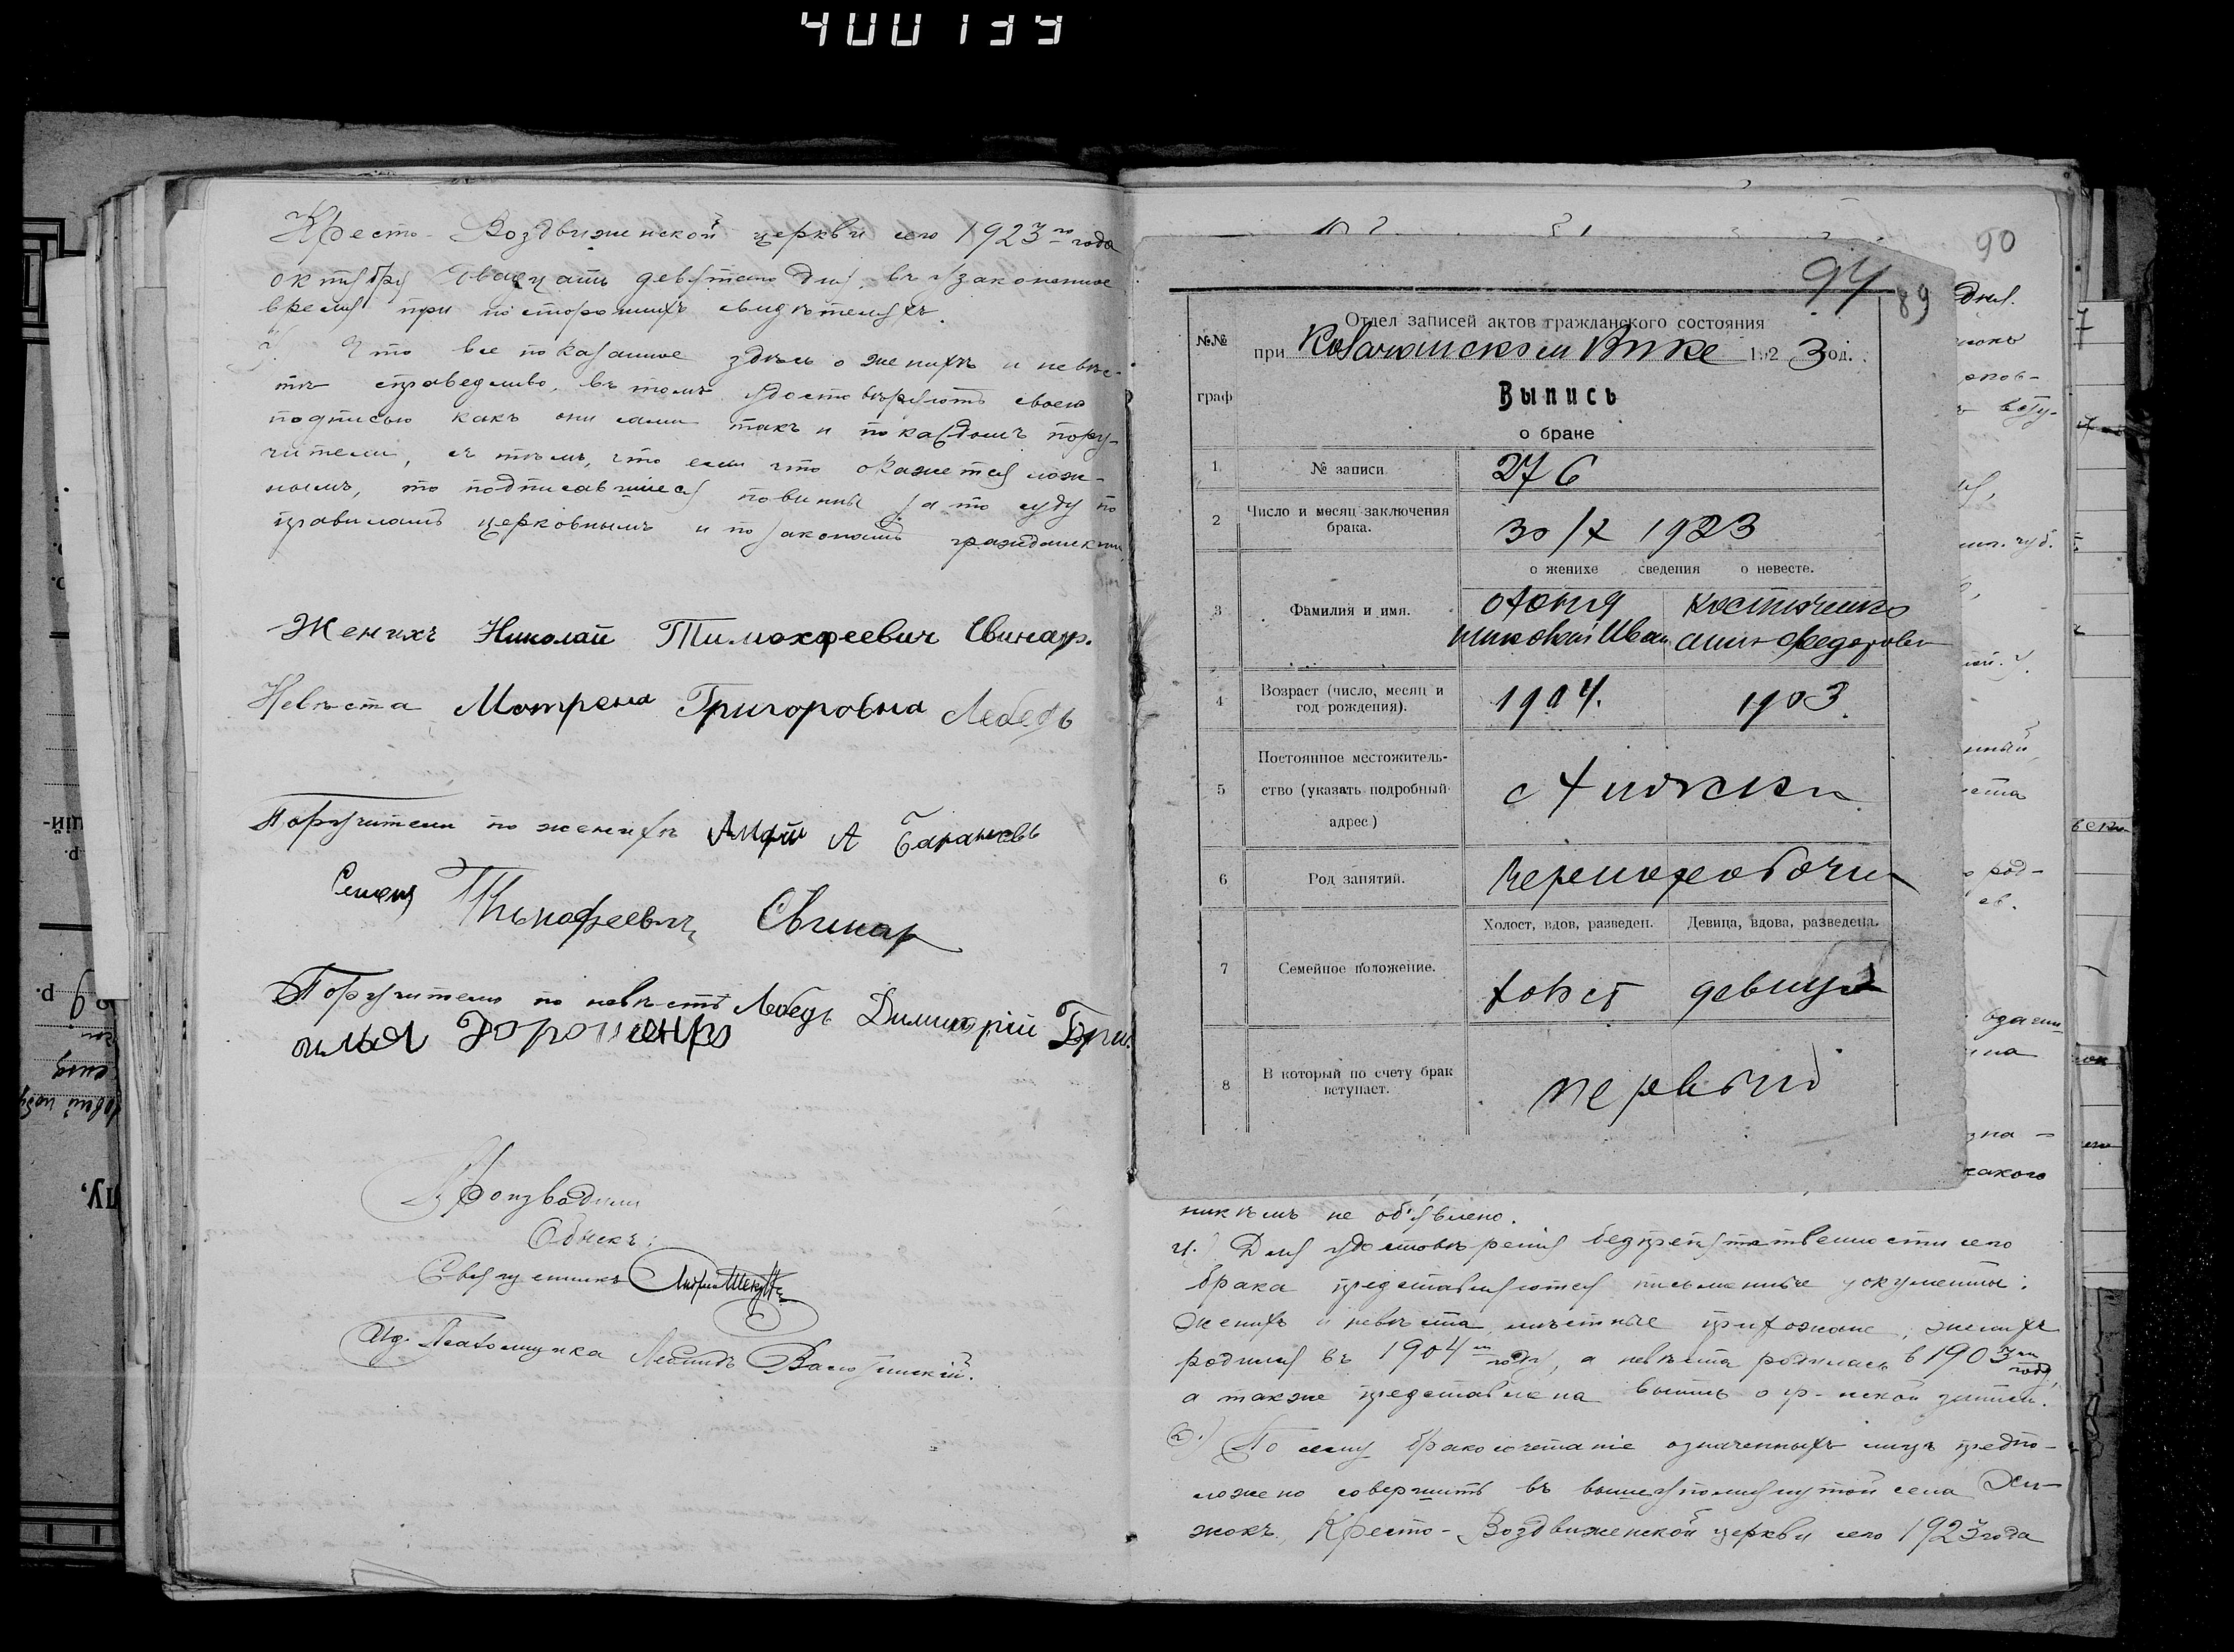 400139
Кресто-Воздвиженской церкви сего 1923го года
октября двадцать девятого дня, въ узаконенное
время при постороннихъ свидѣтеляхъ.
Что все показанное здѣсь о женихѣ и невѣс-
тѣ справедливо, въ томъ удостовѣряютъ своею
подписью какъ они сами такъ и по каждомъ пору-
чители, съ тѣмъ, что если что окажется лож-
нымъ, то подписавшиеся повинны за то суду по
правиламъ церковнымъ и по законамъ граждански
Женихъ Николай Тимохфеевич Свинар.
Невѣста Мотрена Григоровна Лебедь
Поручители по женихѣ А Баранов
Семен Тимофеевич Свинар
Поручители по невѣстѣ Лебедь Димитрій Гри
илья Дорошенко
Производили
Обыскъ:
Священникъ
Ид. Псаломщика Леонидъ
90
94
89
Отдел записей актов гражданского состояния
№№ граф
при Вике 1923 год.
Выпись
о браке
1 № записи 276
2 Число и месяц заключения брака. 30/X 1923
о женихе сведения о невесте.
3 Фамилия и имя.
Костюченко
Федоровн
4 Возраст (число, месяц и год рождения). 1904. 1903.
5 Постоянное местожитель-
ство (указать подробный
адрес) с Хижки
6 Род занятий. Чернорабочи
Холост, вдов, разведен. Девица, вдова, разведена.
7 Семейное положение. холст девица
8 В который по счету брак вступает. первый
дня.
никѣмъ не объявлено.
4.) Для удостовѣренія безпрепятственности сего
брака представляются письменные документы:
женихъ и невѣста мѣстные прихожане, женихъ
родился въ 1904м году, а невѣста родилась в 1903м году,
а также представлена выпись о гр-нской записи.
5.) По сему бракосочетаніе означенныхъ лицъ предпо-
ложено совершить въ вышеупомянутой села Хи-
жокъ, Кресто-Воздвиженской церкви сего 1923 года